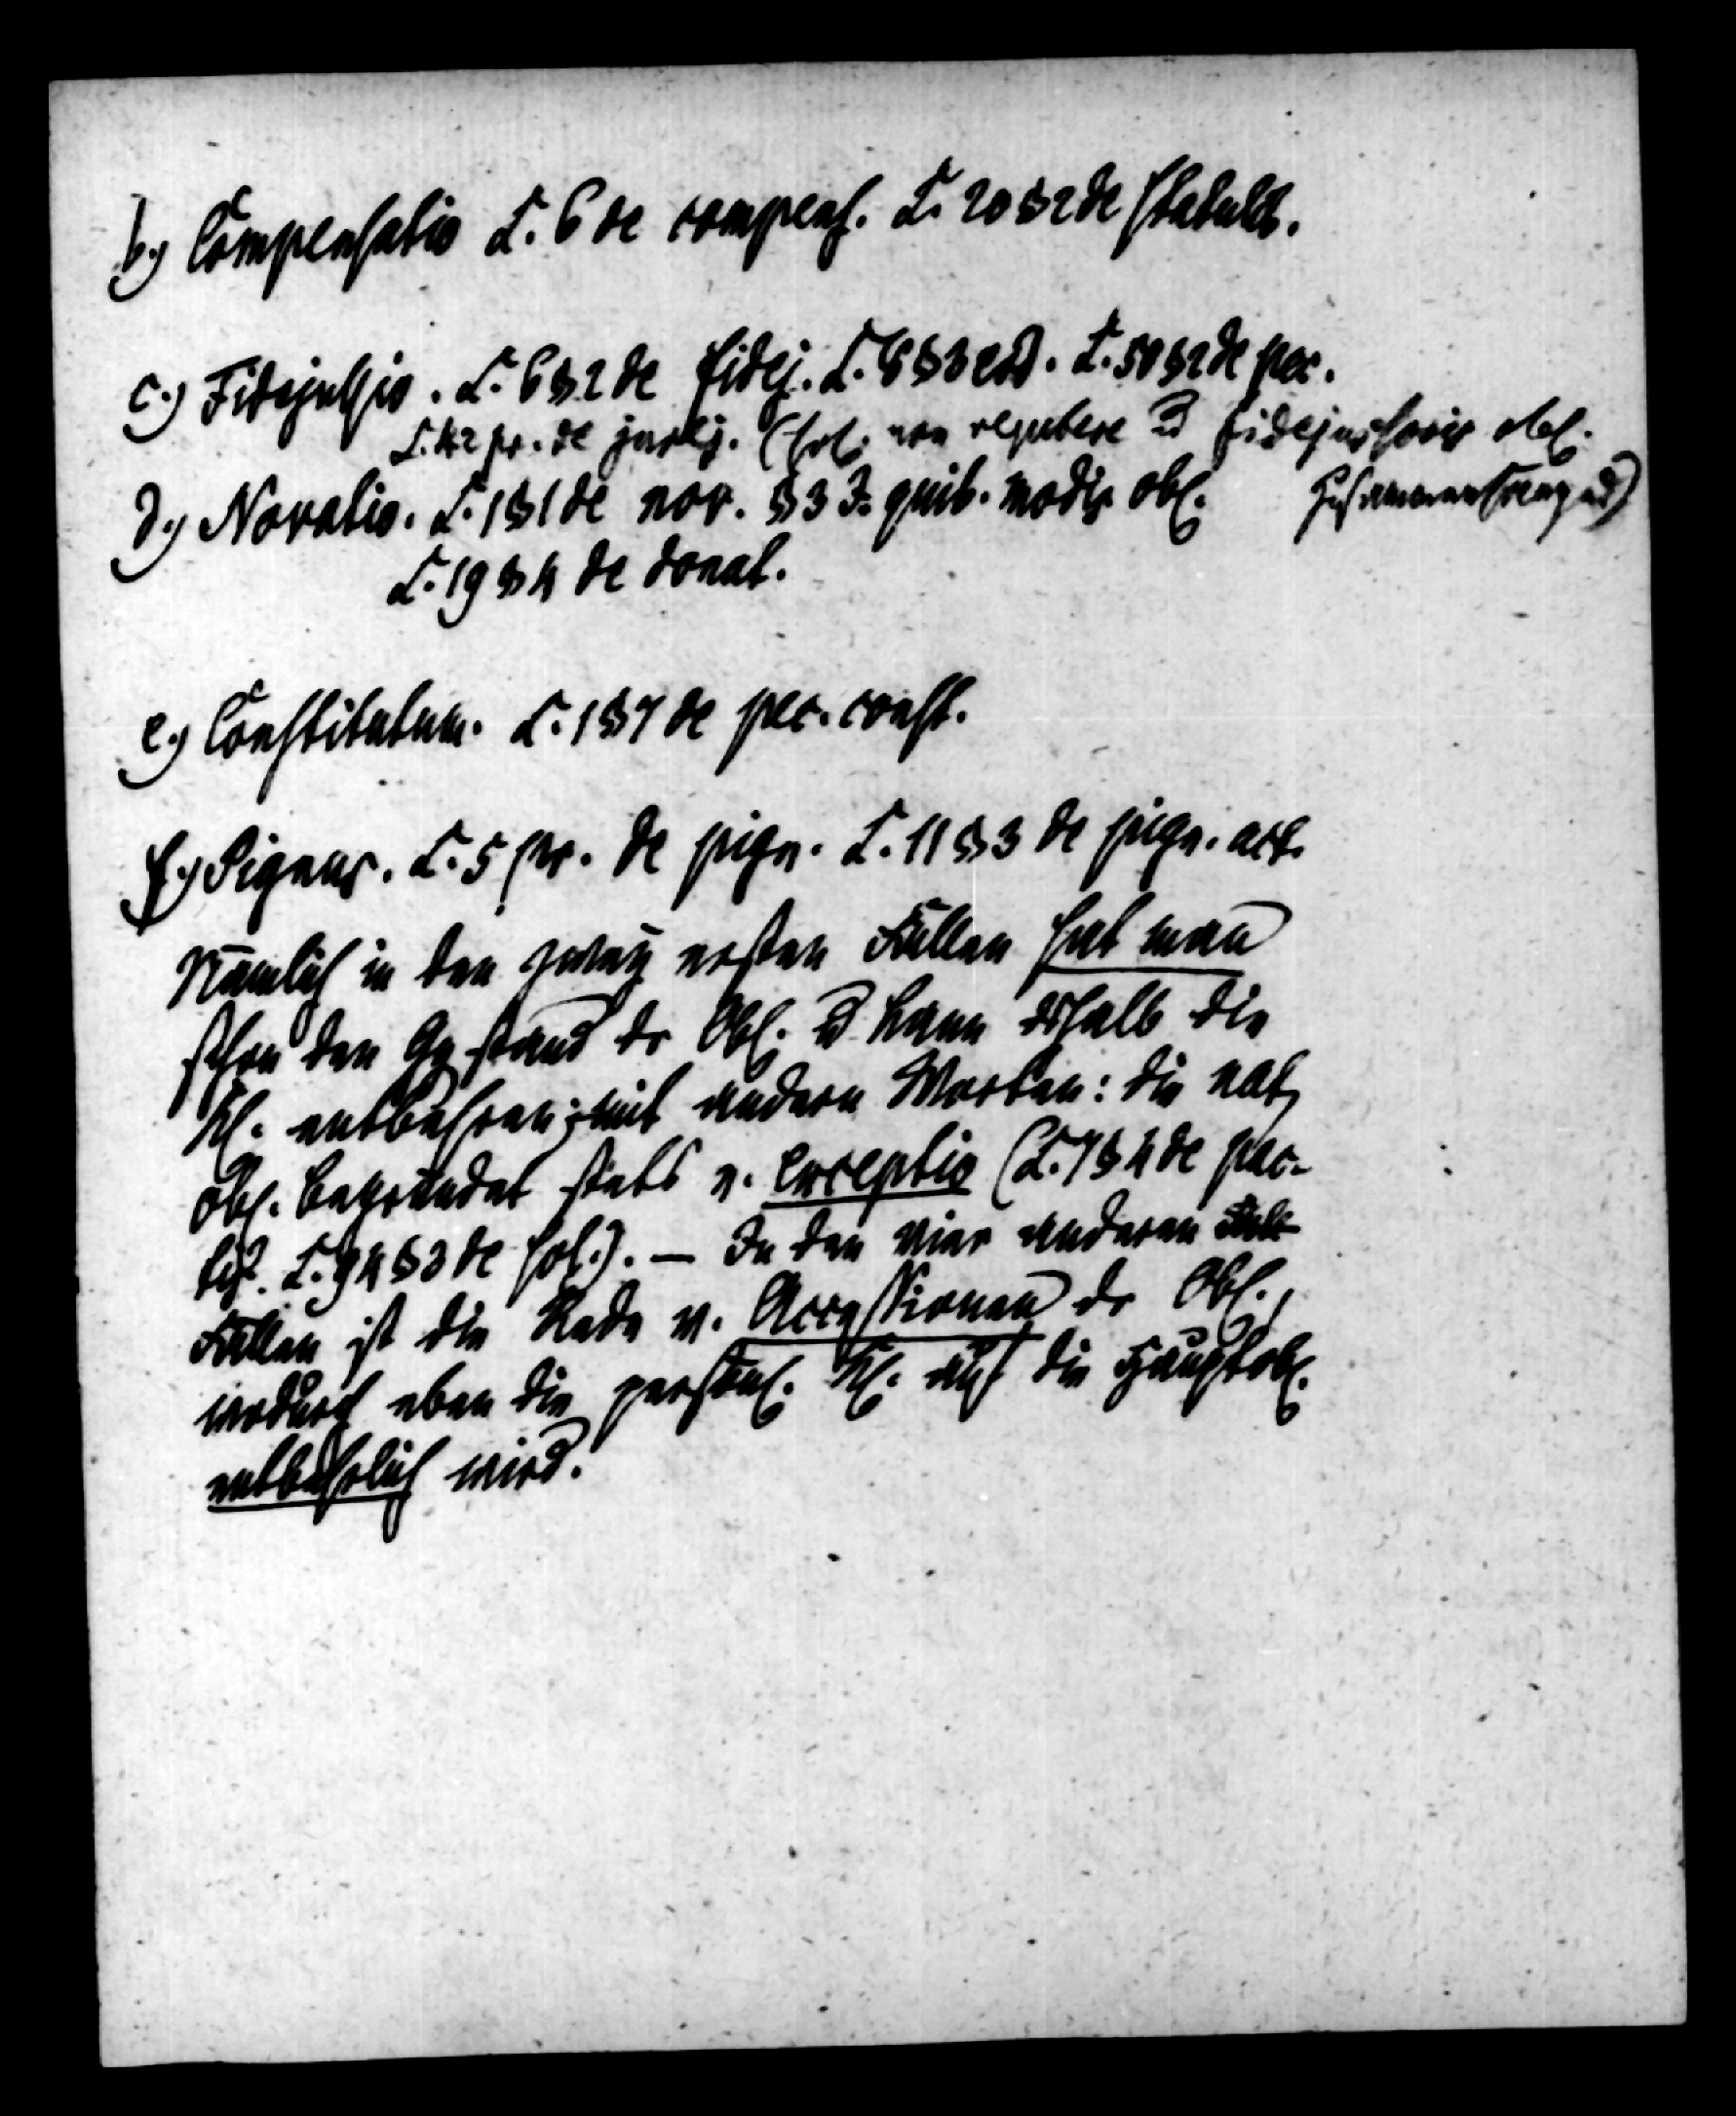 b.) Compensatio L. 6 de compens. L. 20 § 2 de statulib.
c.) Fidejussio. L. 6 § 2 de fidej. L. 6 § 3 eod. L. 50 § 2 de pec.
L. 42 pr. de jurej. (sol. non repetere u fidejussoris obl.
zusammenhängend)
d.) Novatio. L. 1 § 1 de nov. § 3 J. quib. modis obl.
L. 19 § 4 de donat.
e.) Constitutum. L. 1 § 7 de pec. const.
f.) Pignus. L. 5 pr. de pign. L. 11 § 3 de pign. act.
Nämlich in den zwey ersten Fällen hat man
schon den Ggstand dr Obl. u kann dshalb die
Kl. entbehren; mit andern Worten: die nat.
Obl. begründet stets e. exceptio (L. 7 § 4 de pac-
tis. L. 94 § 3 de sol.). — In den vier anderen
Fällen ist die Rede v. Accessionen dr Obl.,
wodurch eben die persönl. Kl. auf die Hauptobl.
entbehrlich wird.